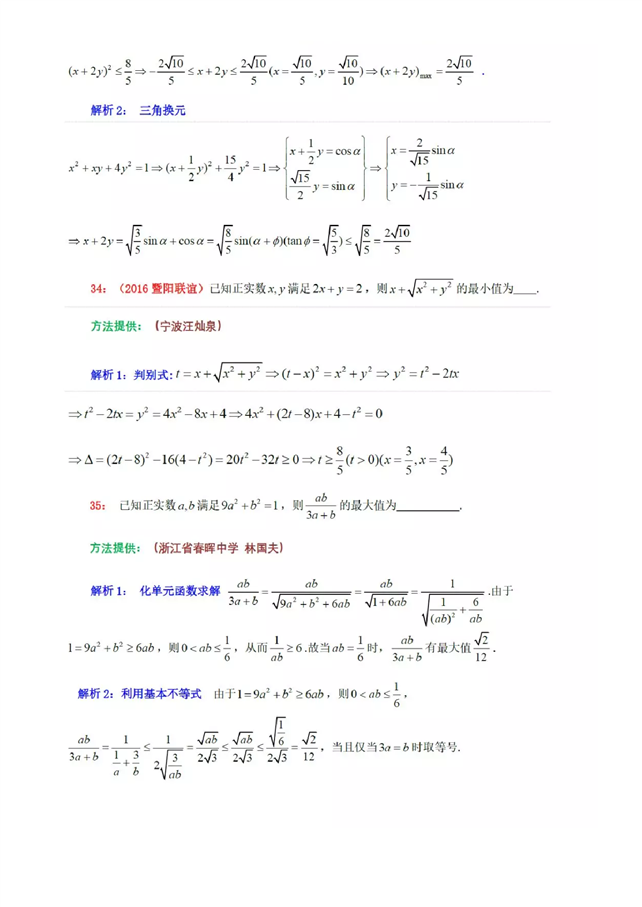 (x+2y)² ≤ 8/5 ⇒ -2√10/5 ≤ x+2y ≤ 2√10/5 (x=√10/5, y=√10/10) ⇒ (x+2y)max = 2√10/5 .
解析2： 三角换元
x²+xy+4y²=1 ⇒ (x+1/2 y)²+15/4 y²=1 ⇒ { x+1/2 y=cosα, √15/2 y=sinα } ⇒ { x=2/√15 sinα, y=-1/√15 sinα
⇒ x+2y=√(3/5) sinα+cosα=√(8/5) sin(α+ϕ)(tanϕ=√(5/3)) ≤ √(8/5)=2√10/5
34：（2016 暨阳联谊）已知正实数x,y满足2x+y=2，则x+√(x²+y²)的最小值为____.
方法提供：（宁波汪灿泉）
解析1：判别式:t=x+√(x²+y²) ⇒ (t-x)²=x²+y² ⇒ y²=t²-2tx
⇒ t²-2tx=y²=4x²-8x+4 ⇒ 4x²+(2t-8)x+4-t²=0
⇒ Δ=(2t-8)²-16(4-t²)=20t²-32t≥0 ⇒ t≥8/5 (t>0)(x=3/5,x=4/5)
35： 已知正实数a,b满足9a²+b²=1，则 ab/(3a+b) 的最大值为__________.
方法提供：（浙江省春晖中学 林国夫）
解析1： 化单元函数求解 ab/(3a+b)=ab/√(9a²+b²+6ab)=ab/√(1+6ab)=1/√(1/(ab)²+6/ab) .由于
1=9a²+b²≥6ab，则0<ab≤1/6，从而1/ab≥6.故当ab=1/6时，ab/(3a+b)有最大值√2/12.
解析2：利用基本不等式 由于1=9a²+b²≥6ab，则0<ab≤1/6，
ab/(3a+b)=1/(1/a+3/b)≤1/(2√(3/ab))=√ab/2√3≤√ab/2√3≤√(1/6)/2√3=√2/12，当且仅当3a=b时取等号.